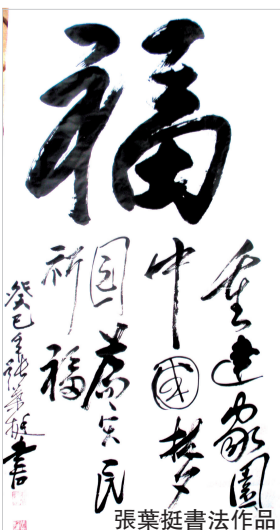 福
重建家園
中國夢
圆 灾民
祈福
癸巳 張葉挺書
張葉挺書法作品